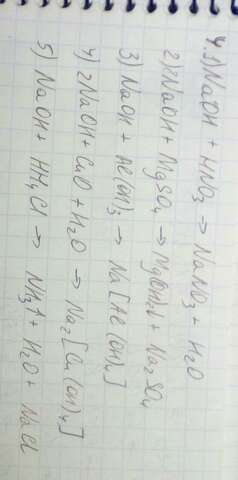 4. 1) NaOH + HNO₃ → NaNO₃ + H₂O
2) 2NaOH + MgSO₄ → Mg(OH)₂↓ + Na₂SO₄
3) NaOH + Al(OH)₃ → Na[Al(OH)₄]
4) 2NaOH + CuO + H₂O → Na₂[Cu(OH)₄]
5) NaOH + NH₄Cl → NH₃↑ + H₂O + NaCl